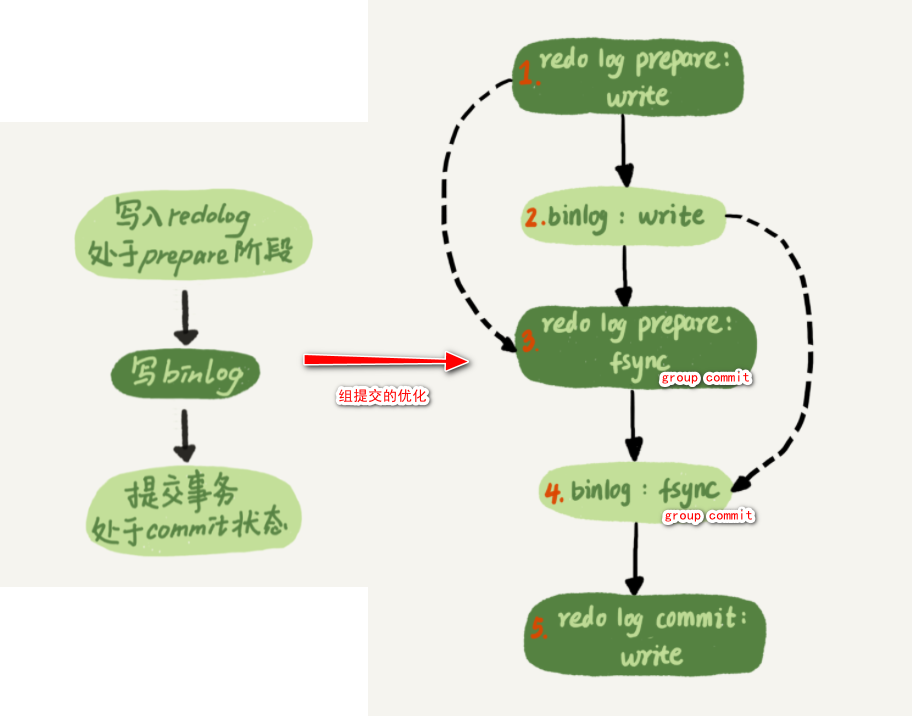 写入redolog
处于prepare阶段
写binlog
提交事务
处于commit状态
组提交的优化
1. redo log prepare:
write
2. binlog : write
3. redo log prepare:
fsync
group commit
4. binlog : fsync
group commit
5. redo log commit:
write